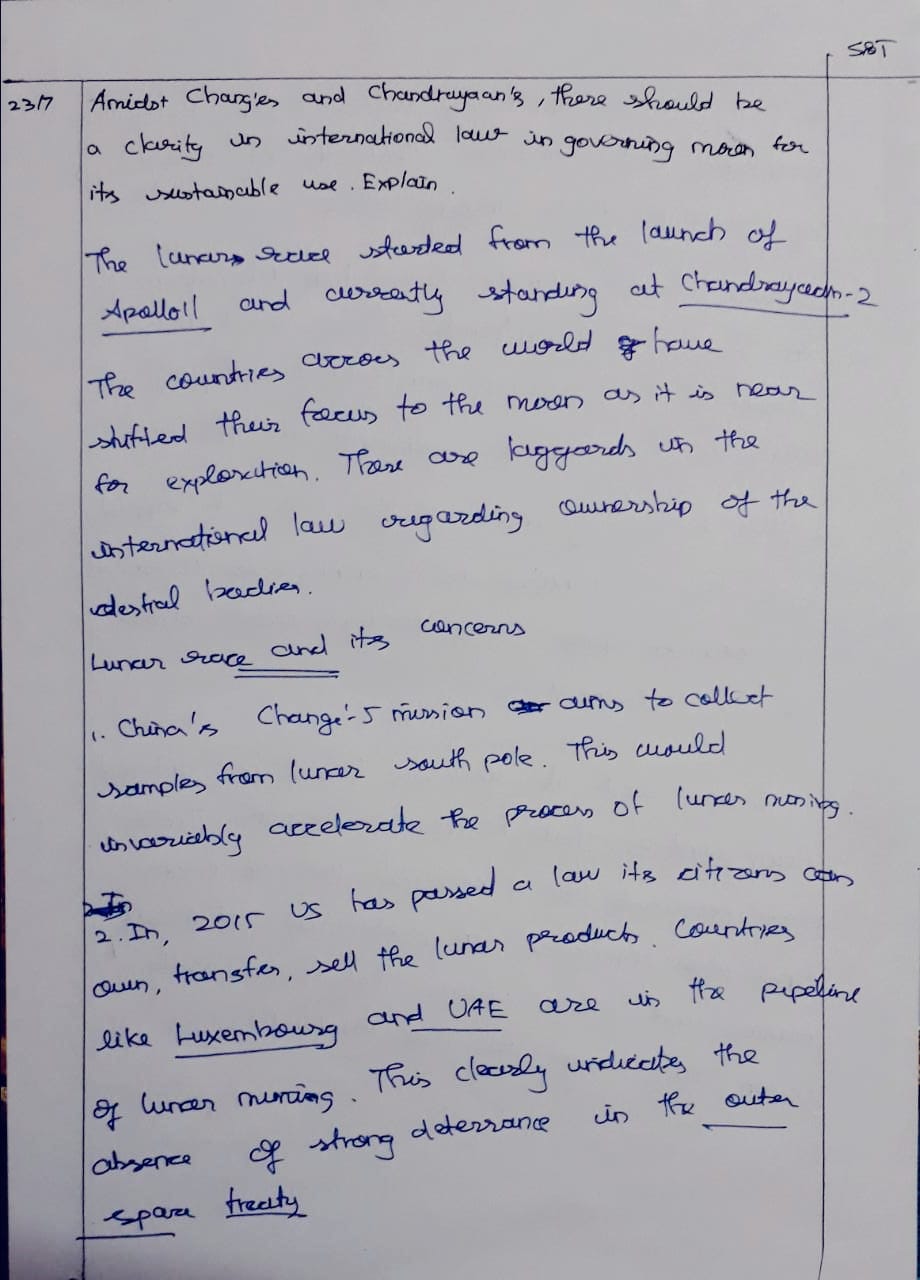 SBT
23/7 Amidst Chang'es and Chandrayaan's, there should be
a clarity in international law in governing moon for
its sustainable use. Explain.
The lunar race started from the launch of
Apollo11 and currently standing at Chandrayaan-2
The countries across the world have
shifted their focus to the moon as it is near
for exploration. There are laggards in the
international law regarding ownership of the
celestial bodies.
Lunar race and its concerns
1. China's Change'-5 mission aims to collect
samples from lunar south pole. This would
invariably accelerate the process of lunar mining.
2. In, 2015 US has passed a law its citizens can
own, transfer, sell the lunar products. Countries
like Luxembourg and UAE are in the pipeline
of lunar mining. This clearly indicates the
absence of strong deterrance in the outer
space treaty